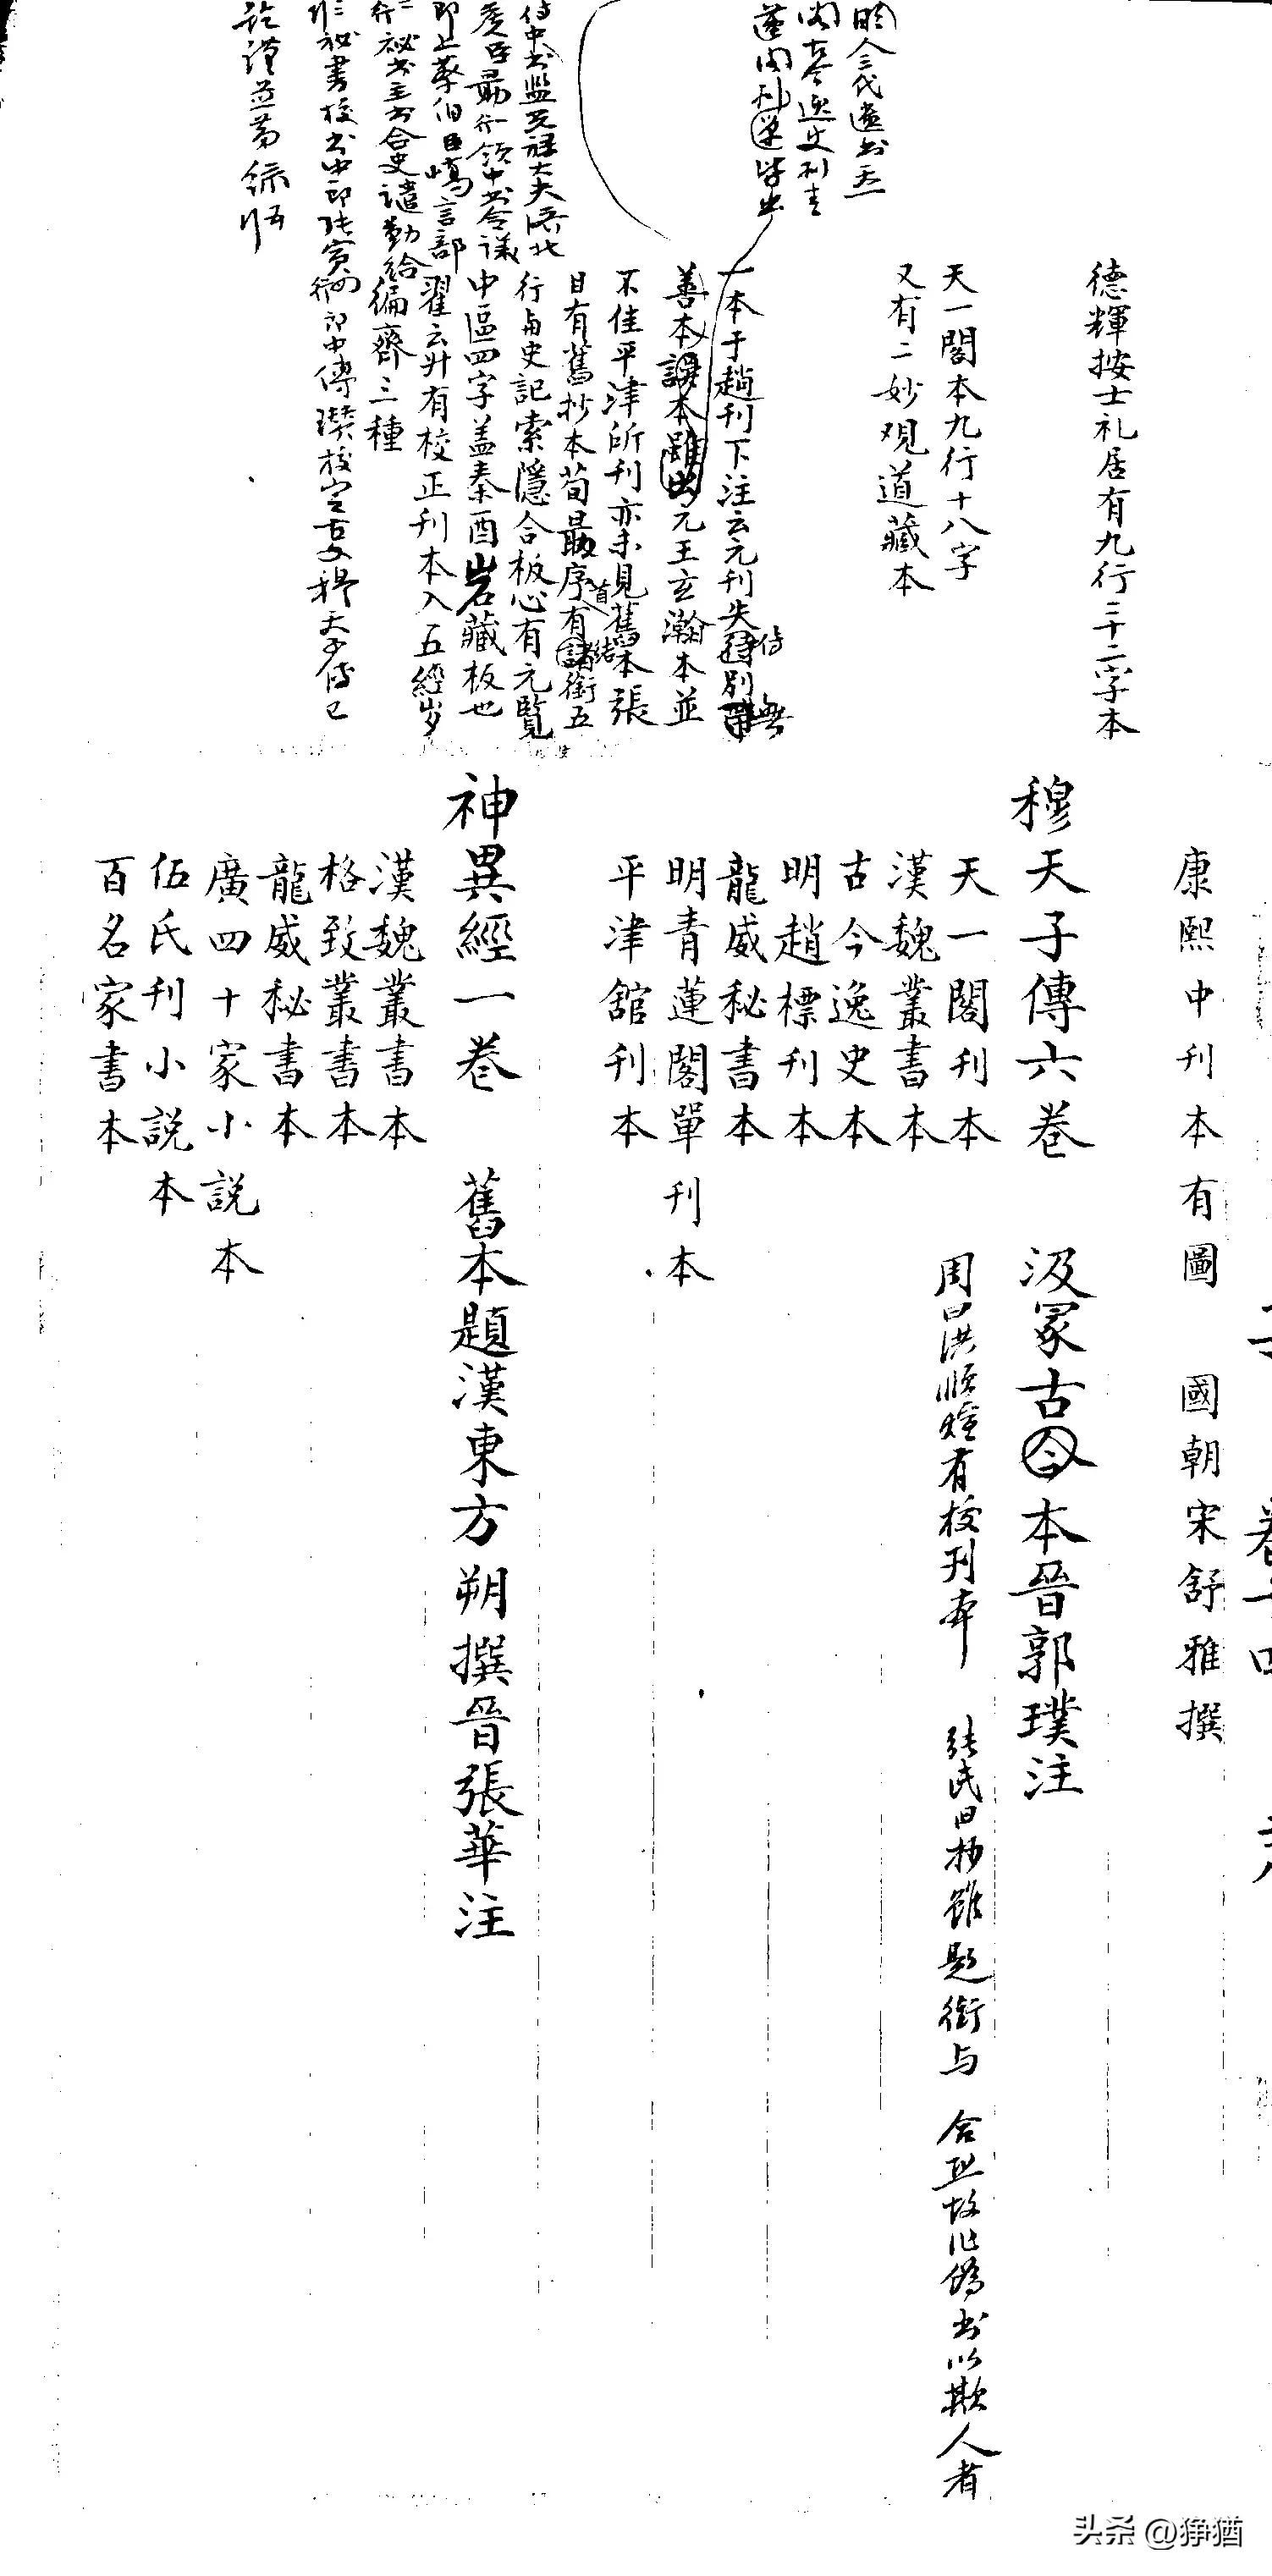 康熙中刊本有圖 國朝宋舒雅撰
穆天子傳六卷 汲冢古今本晉郭璞注
天一閣刊本
周曰洪頤煊有校刊本 張氏曰抄雖題銜与 合 故 偽书以欺人者
漢魏叢書本
古今逸史本
明趙標刊本
龍威秘書本
明青蓮閣單刊本
平津館刊本
神異經一卷 舊本題漢東方朔撰晉張華注
漢魏叢書本
格致叢書本
龍威秘書本
廣四十家小説本
伍氏刊小説本
百名家書本
德輝按士礼居有九行二十二字本
天一閣本九行十八字
又有二妙观道藏本
明人三代遺书
閣古今逸史刊
蓮閣刊單
一本于趙刊下注云元刊失傳別無
善本 本雖出元王玄瀚本並
不佳平津所刊亦未見舊本張
目有舊抄本荀勗序首有結銜五
行与史記索隱合板心有元覽
中區四字蓋秦酉岩藏板也
翟云升有校正刊本入五經歲
徧齋三種
侍中书监光祿大夫濟北
侯臣勗行領中书令議
郎上蔡伯臣嶠言部
秘书主书令史譴勤給
秘書校书中郎張宙
郎中傅瓚校定古文穆天子傳已
訖謹並第録
头条 @狰猶